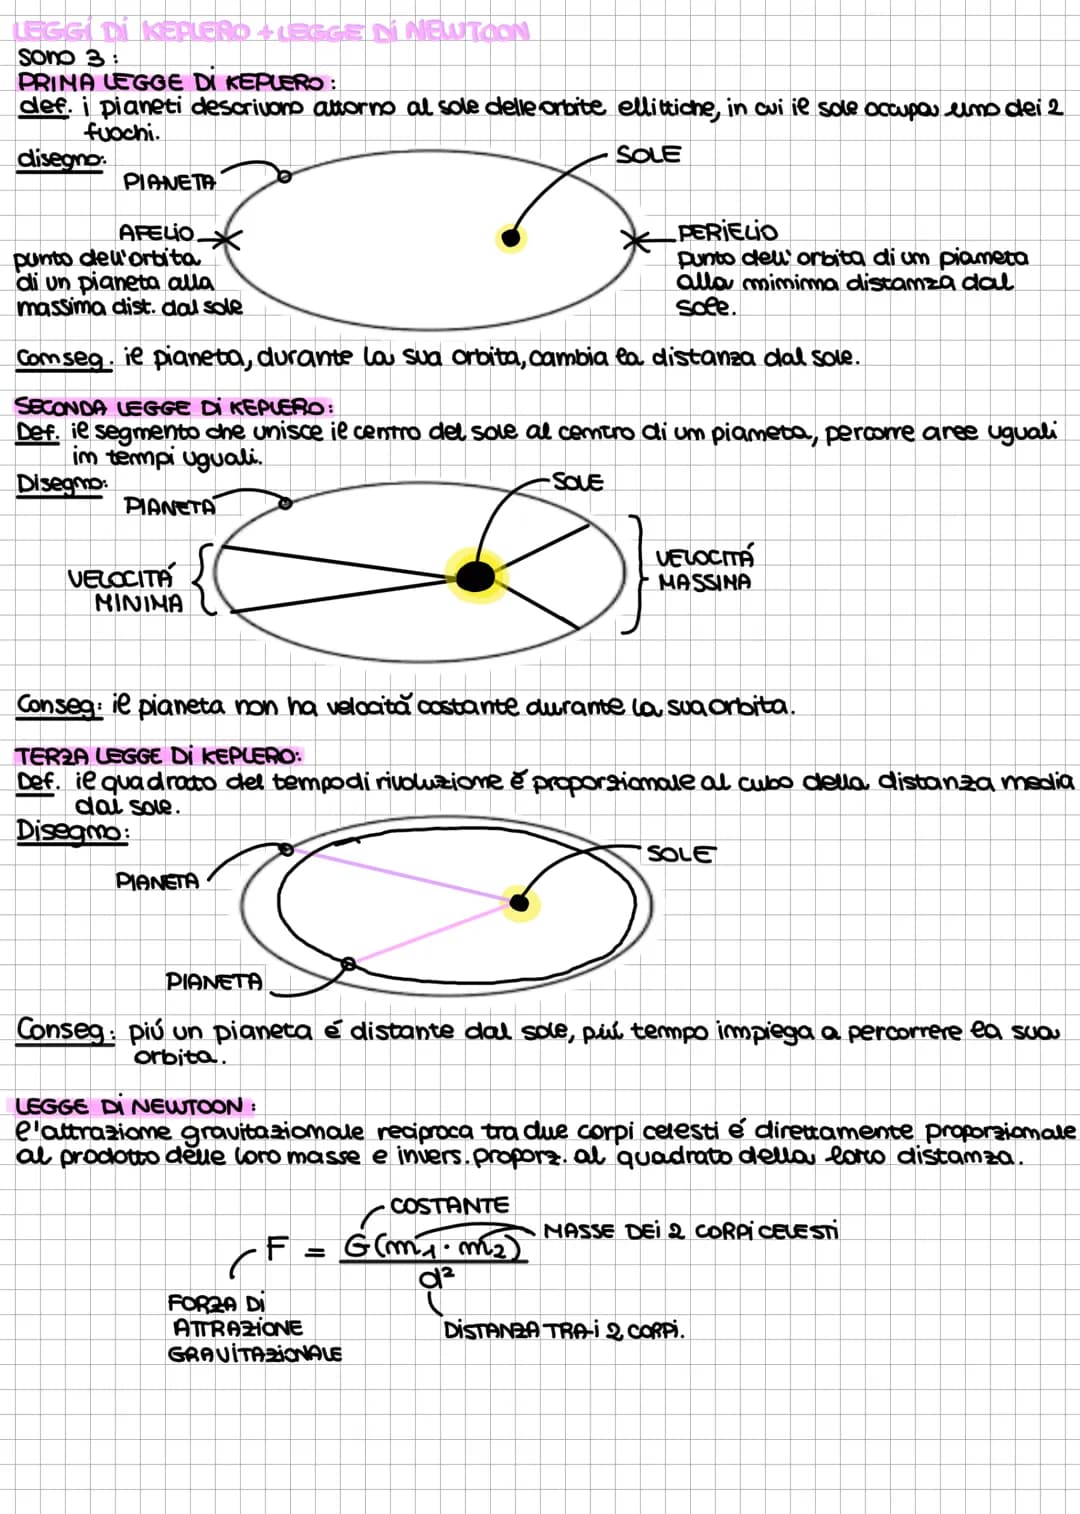 LEGGI DI KEPLERO + LEGGE DI NEWTOON
sono 3:
PRIMA LEGGE DI KEPLERO:
def. i pianeti descrivono attorno al sole delle orbite ellittiche, in cui il sole occupa uno dei 2
fuochi.
disegno:
SOLE
PIANETA
AFELIO
punto dell'orbita
di un pianeta alla
massima dist. dal sole
PERIELIO
punto dell'orbita di un pianeta
alla minima distanza dal
sole.
Conseg. il pianeta, durante la sua orbita, cambia la distanza dal sole.
SECONDA LEGGE DI KEPLERO:
Def. il segmento che unisce il centro del sole al centro di un pianeta, percorre aree uguali
in tempi uguali.
Disegno:
SOLE
PIANETA
VELOCITÁ
MINIMA
VELOCITÁ
MASSIMA
Conseg: il pianeta non ha velocitá costante durante la sua orbita.
TERZA LEGGE DI KEPLERO:
Def. il quadrato del tempo di rivoluzione é proporzionale al cubo della distanza media
dal sole.
Disegno:
SOLE
PIANETA
PIANETA
Conseg: piú un pianeta é distante dal sole, piú tempo impiega a percorrere la sua
orbita.
LEGGE DI NEWTOON:
l'attrazione gravitazionale reciproca tra due corpi celesti é direttamente proporzionale
al prodotto delle loro masse e invers. proporz. al quadrato della loro distanza.
COSTANTE
MASSE DEI 2 CORPI CELESTI
F = G(m₁·m₂)
d²
FORZA DI
ATTRAZIONE
GRAVITAZIONALE
DISTANZA TRA I 2 CORPI.